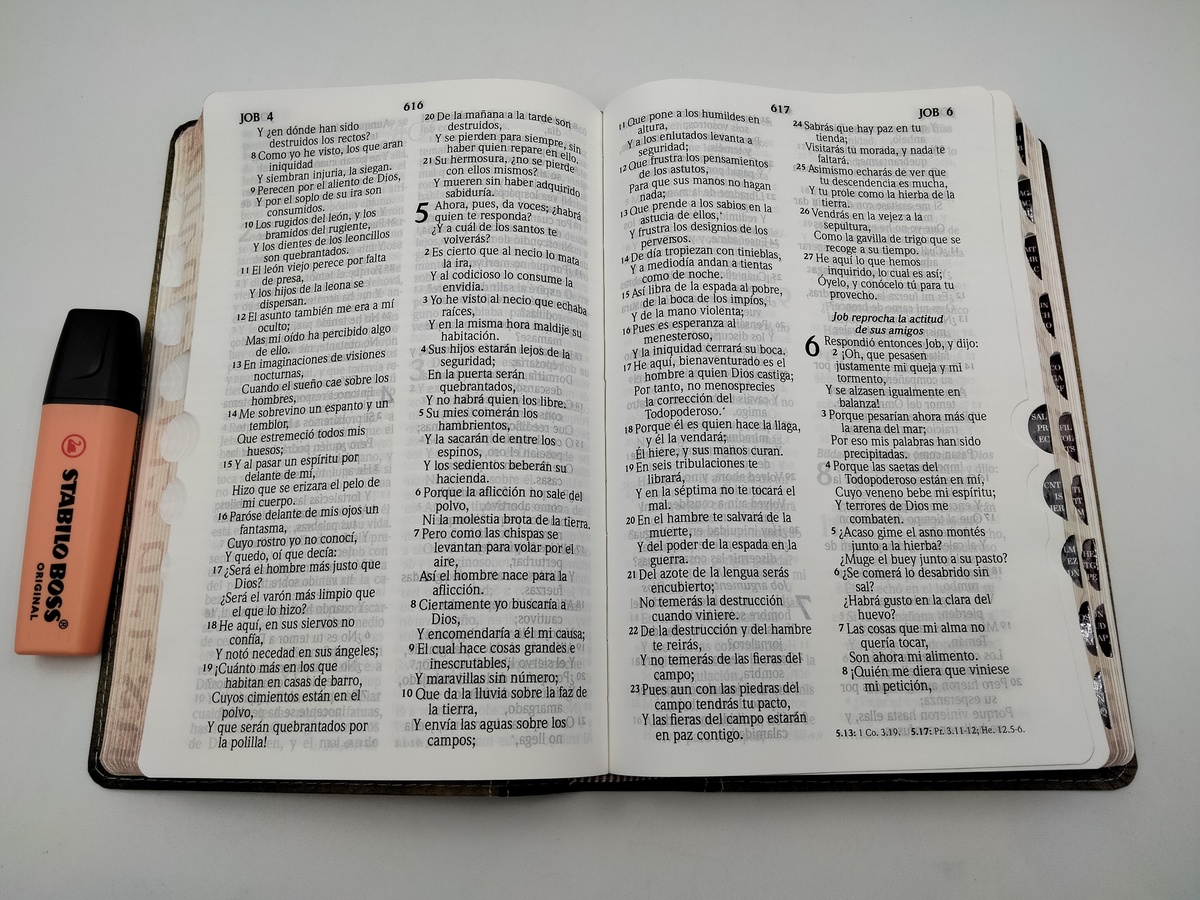 JOB 4
616
Y ¿en dónde han sido
destruidos los rectos?
8 Como yo he visto, los que aran
iniquidad
Y siembran injuria, la siegan.
9 Perecen por el aliento de Dios,
Y por el soplo de su ira son
consumidos.
10 Los rugidos del león, y los
bramidos del rugiente,
Y los dientes de los leoncillos
son quebrantados.
11 El león viejo perece por falta
de presa,
Y los hijos de la leona se
dispersan.
12 El asunto también me era a mí
oculto;
Mas mi oído ha percibido algo
de ello.
13 En imaginaciones de visiones
nocturnas,
Cuando el sueño cae sobre los
hombres,
14 Me sobrevino un espanto y un
temblor,
Que estremeció todos mis
huesos;
15 Y al pasar un espíritu por
delante de mí,
Hizo que se erizara el pelo de
mi cuerpo.
16 Paróse delante de mis ojos un
fantasma,
Cuyo rostro yo no conocí,
Y quedo, oí que decía:
17 ¿Será el hombre más justo que
Dios?
¿Será el varón más limpio que
el que lo hizo?
18 He aquí, en sus siervos no
confía,
Y notó necedad en sus ángeles;
19 ¡Cuánto más en los que
habitan en casas de barro,
Cuyos cimientos están en el
polvo,
Y que serán quebrantados por
la polilla!
20 De la mañana a la tarde son
destruidos,
Y se pierden para siempre, sin
haber quien repare en ello.
21 Su hermosura, ¿no se pierde
con ellos mismos?
Y mueren sin haber adquirido
sabiduría.
5 Ahora, pues, da voces; ¿habrá
quien te responda?
¿Y a cuál de los santos te
volverás?
2 Es cierto que al necio lo mata
la ira,
Y al codicioso lo consume la
envidia.
3 Yo he visto al necio que echaba
raíces,
Y en la misma hora maldije su
habitación.
4 Sus hijos estarán lejos de la
seguridad;
En la puerta serán
quebrantados,
Y no habrá quien los libre.
5 Su mies comerán los
hambrientos,
Y la sacarán de entre los
espinos,
Y los sedientos beberán su
hacienda.
6 Porque la aflicción no sale del
polvo,
Ni la molestia brota de la tierra.
7 Pero como las chispas se
levantan para volar por el
aire,
Así el hombre nace para la
aflicción.
8 Ciertamente yo buscaría a
Dios,
Y encomendaría a él mi causa;
9 El cual hace cosas grandes e
inescrutables,
Y maravillas sin número;
10 Que da la lluvia sobre la faz de
la tierra,
Y envía las aguas sobre los
campos;
617
JOB 6
11 Que pone a los humildes en
altura,
Y a los enlutados levanta a
seguridad;
12 Que frustra los pensamientos
de los astutos,
Para que sus manos no hagan
nada;
13 Que prende a los sabios en la
astucia de ellos,
Y frustra los designios de los
perversos.
14 De día tropiezan con tinieblas,
Y a mediodía andan a tientas
como de noche.
15 Así libra de la espada al pobre,
de la boca de los impíos,
Y de la mano violenta;
16 Pues es esperanza al
menesteroso,
Y la iniquidad cerrará su boca.
17 He aquí, bienaventurado es el
hombre a quien Dios castiga;
Por tanto, no menosprecies
la corrección del
Todopoderoso.
18 Porque él es quien hace la llaga,
y él la vendará;
Él hiere, y sus manos curan.
19 En seis tribulaciones te
librará,
Y en la séptima no te tocará el
mal.
20 En el hambre te salvará de la
muerte,
Y del poder de la espada en la
guerra.
21 Del azote de la lengua serás
encubierto;
No temerás la destrucción
cuando viniere.
22 De la destrucción y del hambre
te reirás,
Y no temerás de las fieras del
campo;
23 Pues aun con las piedras del
campo tendrás tu pacto,
Y las fieras del campo estarán
en paz contigo.
24 Sabrás que hay paz en tu
tienda;
Visitarás tu morada, y nada te
faltará.
25 Asimismo echarás de ver que
tu descendencia es mucha,
Y tu prole como la hierba de la
tierra.
26 Vendrás en la vejez a la
sepultura,
Como la gavilla de trigo que se
recoge a su tiempo.
27 He aquí lo que hemos
inquirido, lo cual es así;
Óyelo, y conócelo tú para tu
provecho.
Job reprocha la actitud
de sus amigos
6 Respondió entonces Job, y dijo:
2 ¡Oh, que pesasen
justamente mi queja y mi
tormento,
Y se alzasen igualmente en
balanza!
3 Porque pesarían ahora más que
la arena del mar;
Por eso mis palabras han sido
precipitadas.
4 Porque las saetas del
Todopoderoso están en mí,
Cuyo veneno bebe mi espíritu;
Y terrores de Dios me
combaten.
5 ¿Acaso gime el asno montés
junto a la hierba?
¿Muge el buey junto a su pasto?
6 ¿Se comerá lo desabrido sin
sal?
¿Habrá gusto en la clara del
huevo?
7 Las cosas que mi alma no
quería tocar,
Son ahora mi alimento.
8 ¡Quién me diera que viniese
mi petición,
5.13: 1 Co. 3.19. 5.17: Pr. 3.11-12; He. 12.5-6.
STABILO BOSS®
ORIGINAL